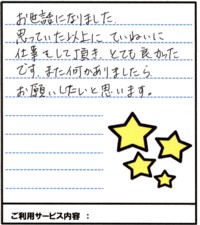 お世話になりました.
思っていた以上に ていねいに
仕事をして頂き、とても良かった
です. また何かありましたら
お願いしたいと思います。
ご利用サービス内容 :